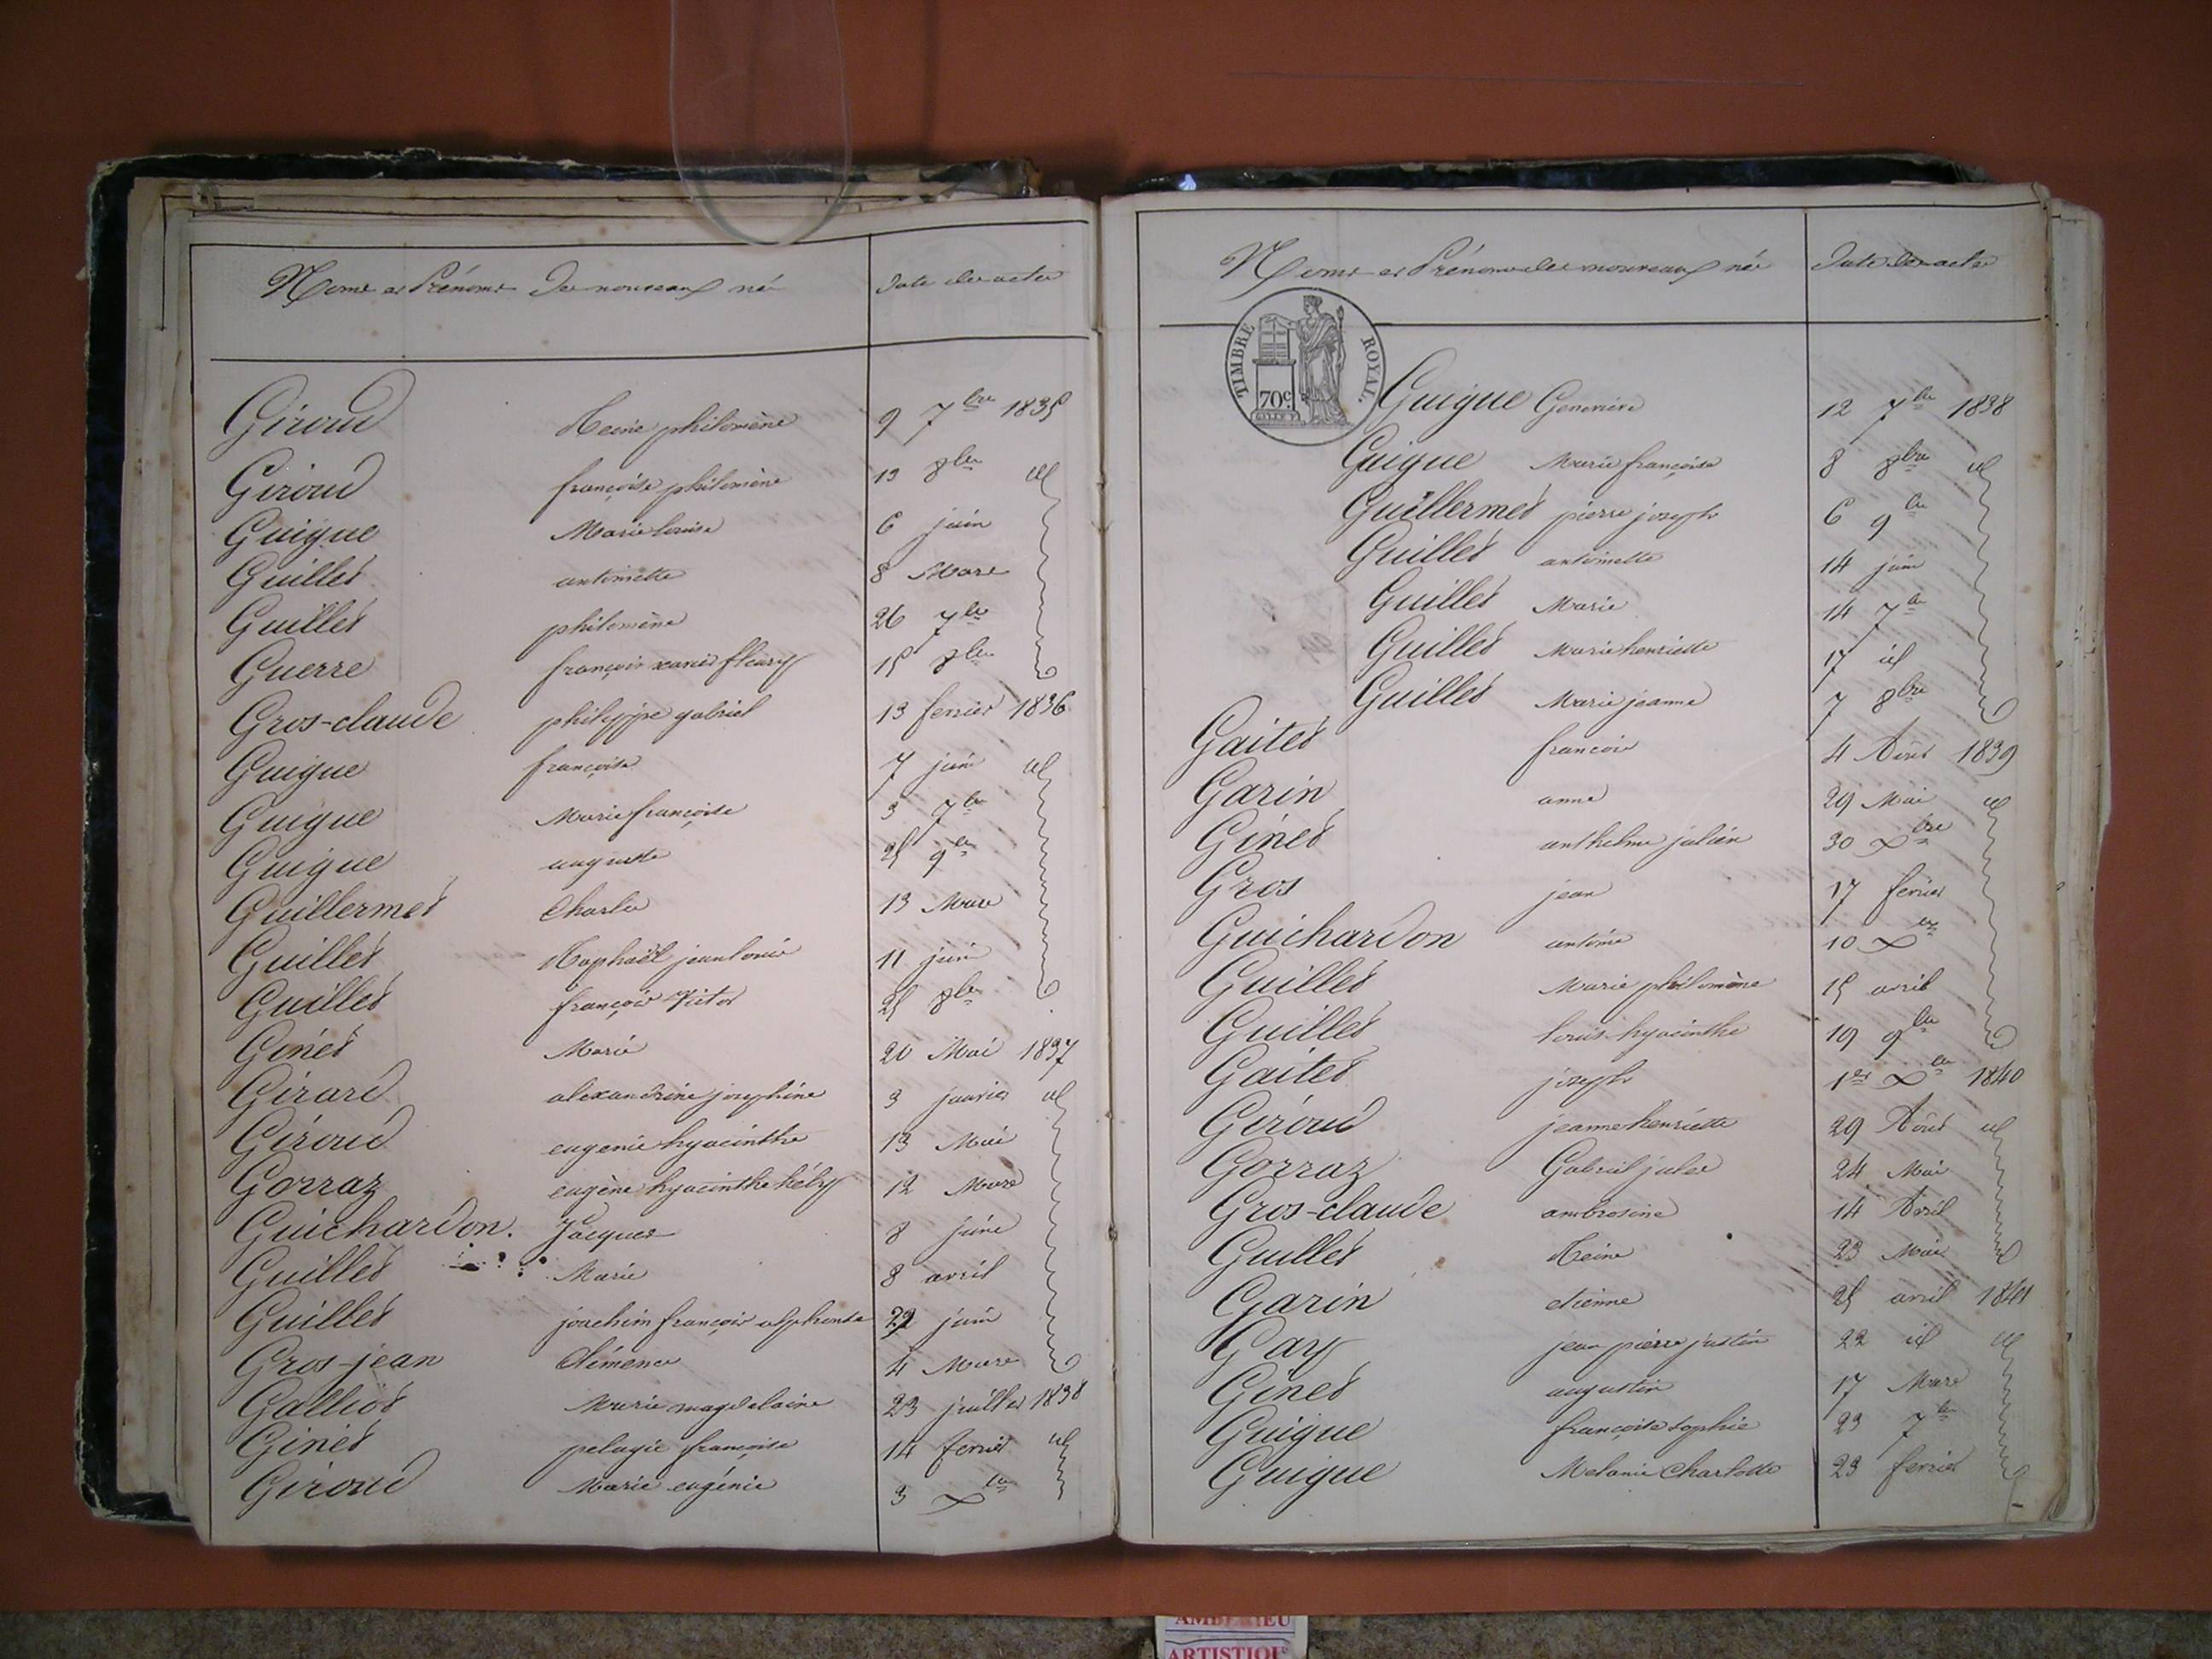 Noms et Prénoms des nouveaux nés Date des actes
Giroud Reine philomène 9 7bre 1835
Giroud françoise philomène 13 8bre id
Guigue Marie louise 6 juin
Guillet antoinette 8 Mars
Guillet philomène 26 7bre
Guerre françois xavier fleury 15 8bre
Gros-claude philippe gabriel 13 fevrier 1836
Guigue françoise 7 juin id
Guigue Marie françoise 3 7bre
Guigue auguste 25 9bre
Guillermet Charles 13 Mars
Guillet Raphaël jean louis 11 juin
Guillet françois Victor 25 8bre
Ginet Marie 20 Mai 1837
Girard alexandrine josephine 3 janvier id
Giroud eugenie hyacinthe 13 Mai
Gorraz eugène hyacinthe hély 12 Mars
Guichardon. Jacques 8 juin
Guillet Marie 8 avril
Guillet joachim françois alphonse 22 juin
Gros-jean Clémence 4 Mars
Galliot Marie magdelaine 23 juillet 1838
Ginet pelagie françoise 14 fevrier id
Giroud Marie eugénie 3 Xbre
Noms et Prénoms des nouveaux nés Date des actes
TIMBRE ROYAL.
70c
Guigue Genevieve 12 7bre 1838
Guigue Marie françoise 8 8bre id
Guillermet pierre joseph 6 9bre
Guillet antoinette 14 juin
Guillet Marie 14 7bre
Guillet Marie henriette 17 id
Guillet Marie jeanne 7 8bre
Gaitet francois 4 Aout 1839
Garin anne 29 Mai id
Ginet anthelme julien 30 Xbre
Gros jean 17 fevrier
Guichardon antoine 10 Xbre
Guillet Marie philomène 15 avril
Guillet louis hyacinthe 19 9bre
Gaitet joseph 1er Xbre 1840
Giroud jeanne henriette 29 Aout id
Gorraz Gabriel jules 24 Mai
Gros-claude ambrosine 14 Avril
Guillet Reine 23 Mai
Garin etienne 25 avril 1841
Gay jean pierre justin 22 id id
Ginet augustin 17 Mars
Guigue françoise sophie 23 7bre
Guigue Melanie Charlotte 23 fevrier
ARTISTIQUE